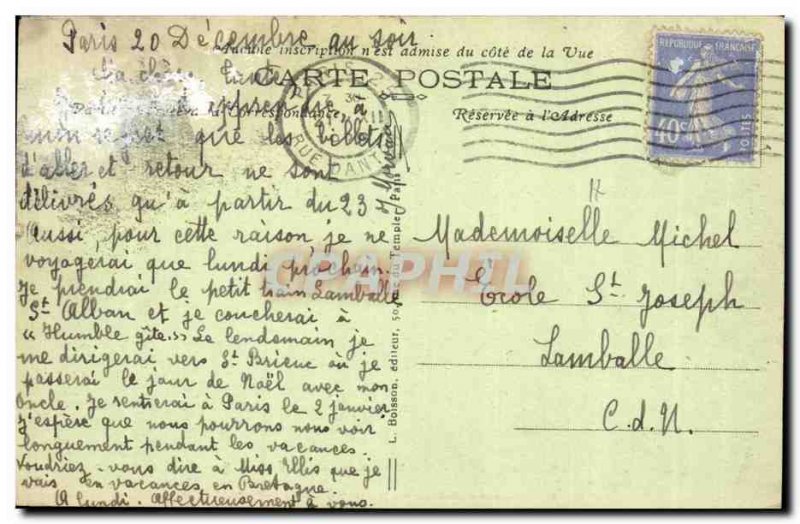 Paris 20 Décembre au soir
Aucune inscription n'est admise du côté de la Vue
CARTE POSTALE
Réservée à l'Adresse
RÉPUBLIQUE FRANÇAISE
40c
POSTES
RUE DANTON
apprendre à
mon regret que les billets
d'aller et retour ne sont
délivrés qu'à partir du 23
Aussi, pour cette raison je ne
voyagerai que lundi prochain.
Je prendrai le petit train Lamballe
St Alban et je coucherai à
« Humble gîte. » Le lendemain je
me dirigerai vers St Brieuc où je
passerai le jour de Noël avec mon
oncle. Je rentrerai à Paris le 2 janvier
J'espère que nous pourrons nous voir
longuement pendant les vacances.
Voudriez-vous dire à Miss Ellis que je
vais en vacances en Bretagne.
A lundi. Affectueusement à vous.
L. Boisson, éditeur, 50, du Temple, Paris
CPAPHIL
Mademoiselle Michel
École St Joseph
Lamballe
C.d.N.